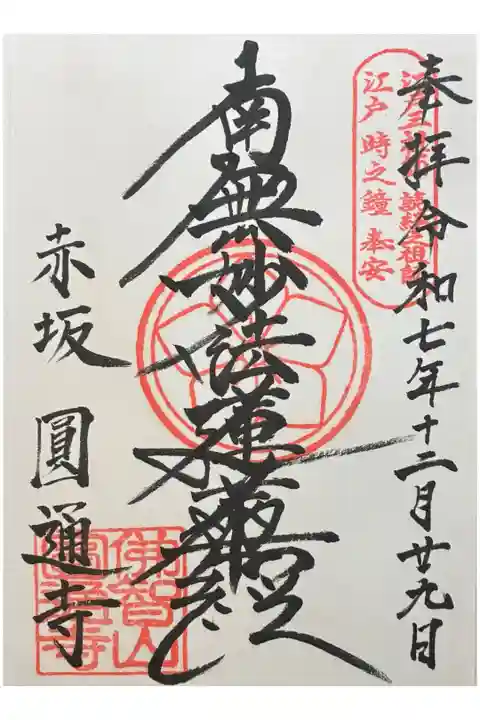 奉拝 令和七年十二月廿九日
江戸 時之鐘 奉安
南無妙法蓮華経
赤坂 圓通寺
佛智山
圓通寺